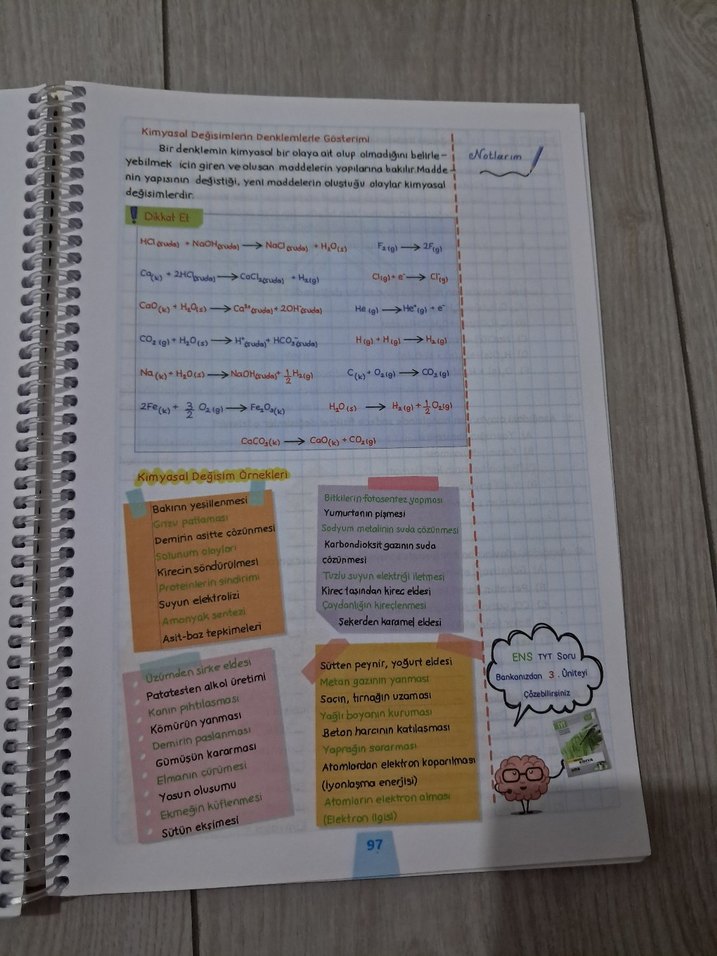 Kimyasal Değişimlerin Denklemlerle Gösterimi
Bir denklemin kimyasal bir olaya ait olup olmadığını belirle-
yebilmek için giren ve oluşan maddelerin yapılarına bakılır. Madde-
nin yapısının değiştiği, yeni maddelerin oluştuğu olaylar kimyasal
değişimlerdir.
Notlarım
! Dikkat Et
HCl(suda) + NaOH(suda) → NaCl(suda) + H₂O(s)
F₂(g) → 2F(g)
Ca(k) + 2HCl(suda) → CaCl₂(suda) + H₂(g)
Cl(g) + e⁻ → Cl⁻(g)
CaO(k) + H₂O(s) → Ca²⁺(suda) + 2OH⁻(suda)
He(g) → He⁺(g) + e⁻
CO₂(g) + H₂O(s) → H⁺(suda) + HCO₃⁻(suda)
H(g) + H(g) → H₂(g)
Na(k) + H₂O(s) → NaOH(suda) + 1/2 H₂(g)
C(k) + O₂(g) → CO₂(g)
2Fe(k) + 3/2 O₂(g) → Fe₂O₃(k)
H₂O(s) → H₂(g) + 1/2 O₂(g)
CaCO₃(k) → CaO(k) + CO₂(g)
Kimyasal Değişim Örnekleri
Bakırın yeşillenmesi
Grizu patlaması
Demirin asitte çözünmesi
Solunum olayları
Kirecin söndürülmesi
Proteinlerin sindirimi
Suyun elektrolizi
Amonyak sentezi
Asit-baz tepkimeleri
Bitkilerin fotosentez yapması
Yumurtanın pişmesi
Sodyum metalinin suda çözünmesi
Karbondioksit gazının suda
çözünmesi
Tuzlu suyun elektriği iletmesi
Kireç taşından kireç eldesi
Çaydanlığın kireçlenmesi
Şekerden karamel eldesi
Üzümden sirke eldesi
Patatesten alkol üretimi
Kanın pıhtılaşması
Kömürün yanması
Demirin paslanması
Gümüşün kararması
Elmanın çürümesi
Yosun oluşumu
Ekmeğin küflenmesi
Sütün ekşimesi
Sütten peynir, yoğurt eldesi
Metan gazının yanması
Saçın, tırnağın uzaması
Yağlı boyanın kuruması
Beton harcının katılaşması
Yaprağın sararması
Atomlardan elektron koparılması
(İyonlaşma enerjisi)
Atomların elektron alması
(Elektron ilgisi)
ENS TYT Soru
Bankanızdan 3. Üniteyi
Çözebilirsiniz
97